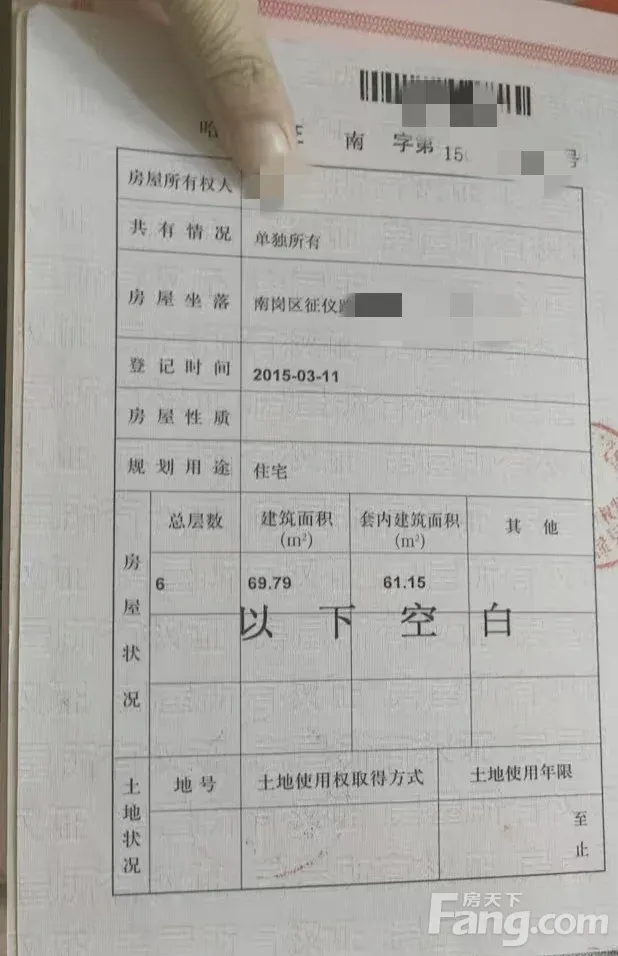 哈 证 南 字第 150 号
房屋所有权人
共有情况 单独所有
房屋坐落 南岗区征仪路
登记时间 2015-03-11
房屋性质
规划用途 住宅
房屋状况
总层数 建筑面积(m²) 套内建筑面积(m²) 其他
6 69.79 61.15
以下空白
土地状况
地号 土地使用权取得方式 土地使用年限
至
止
房天下
Fang.com